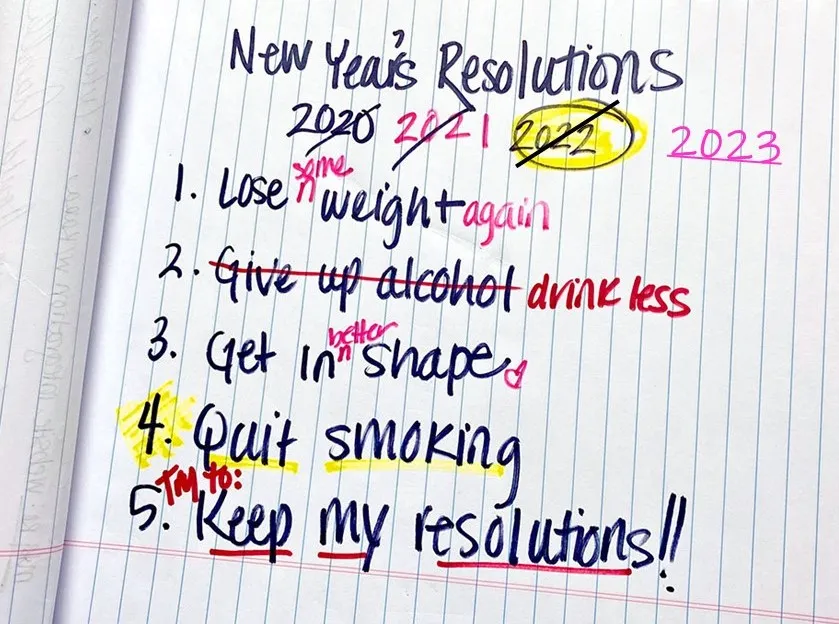 New Year's Resolutions
2020 2021 2022 2023
1. Lose some weight again
2. Give up alcohol drink less
3. Get in better shape
4. Quit smoking
TRY to:
5. Keep my resolutions!!